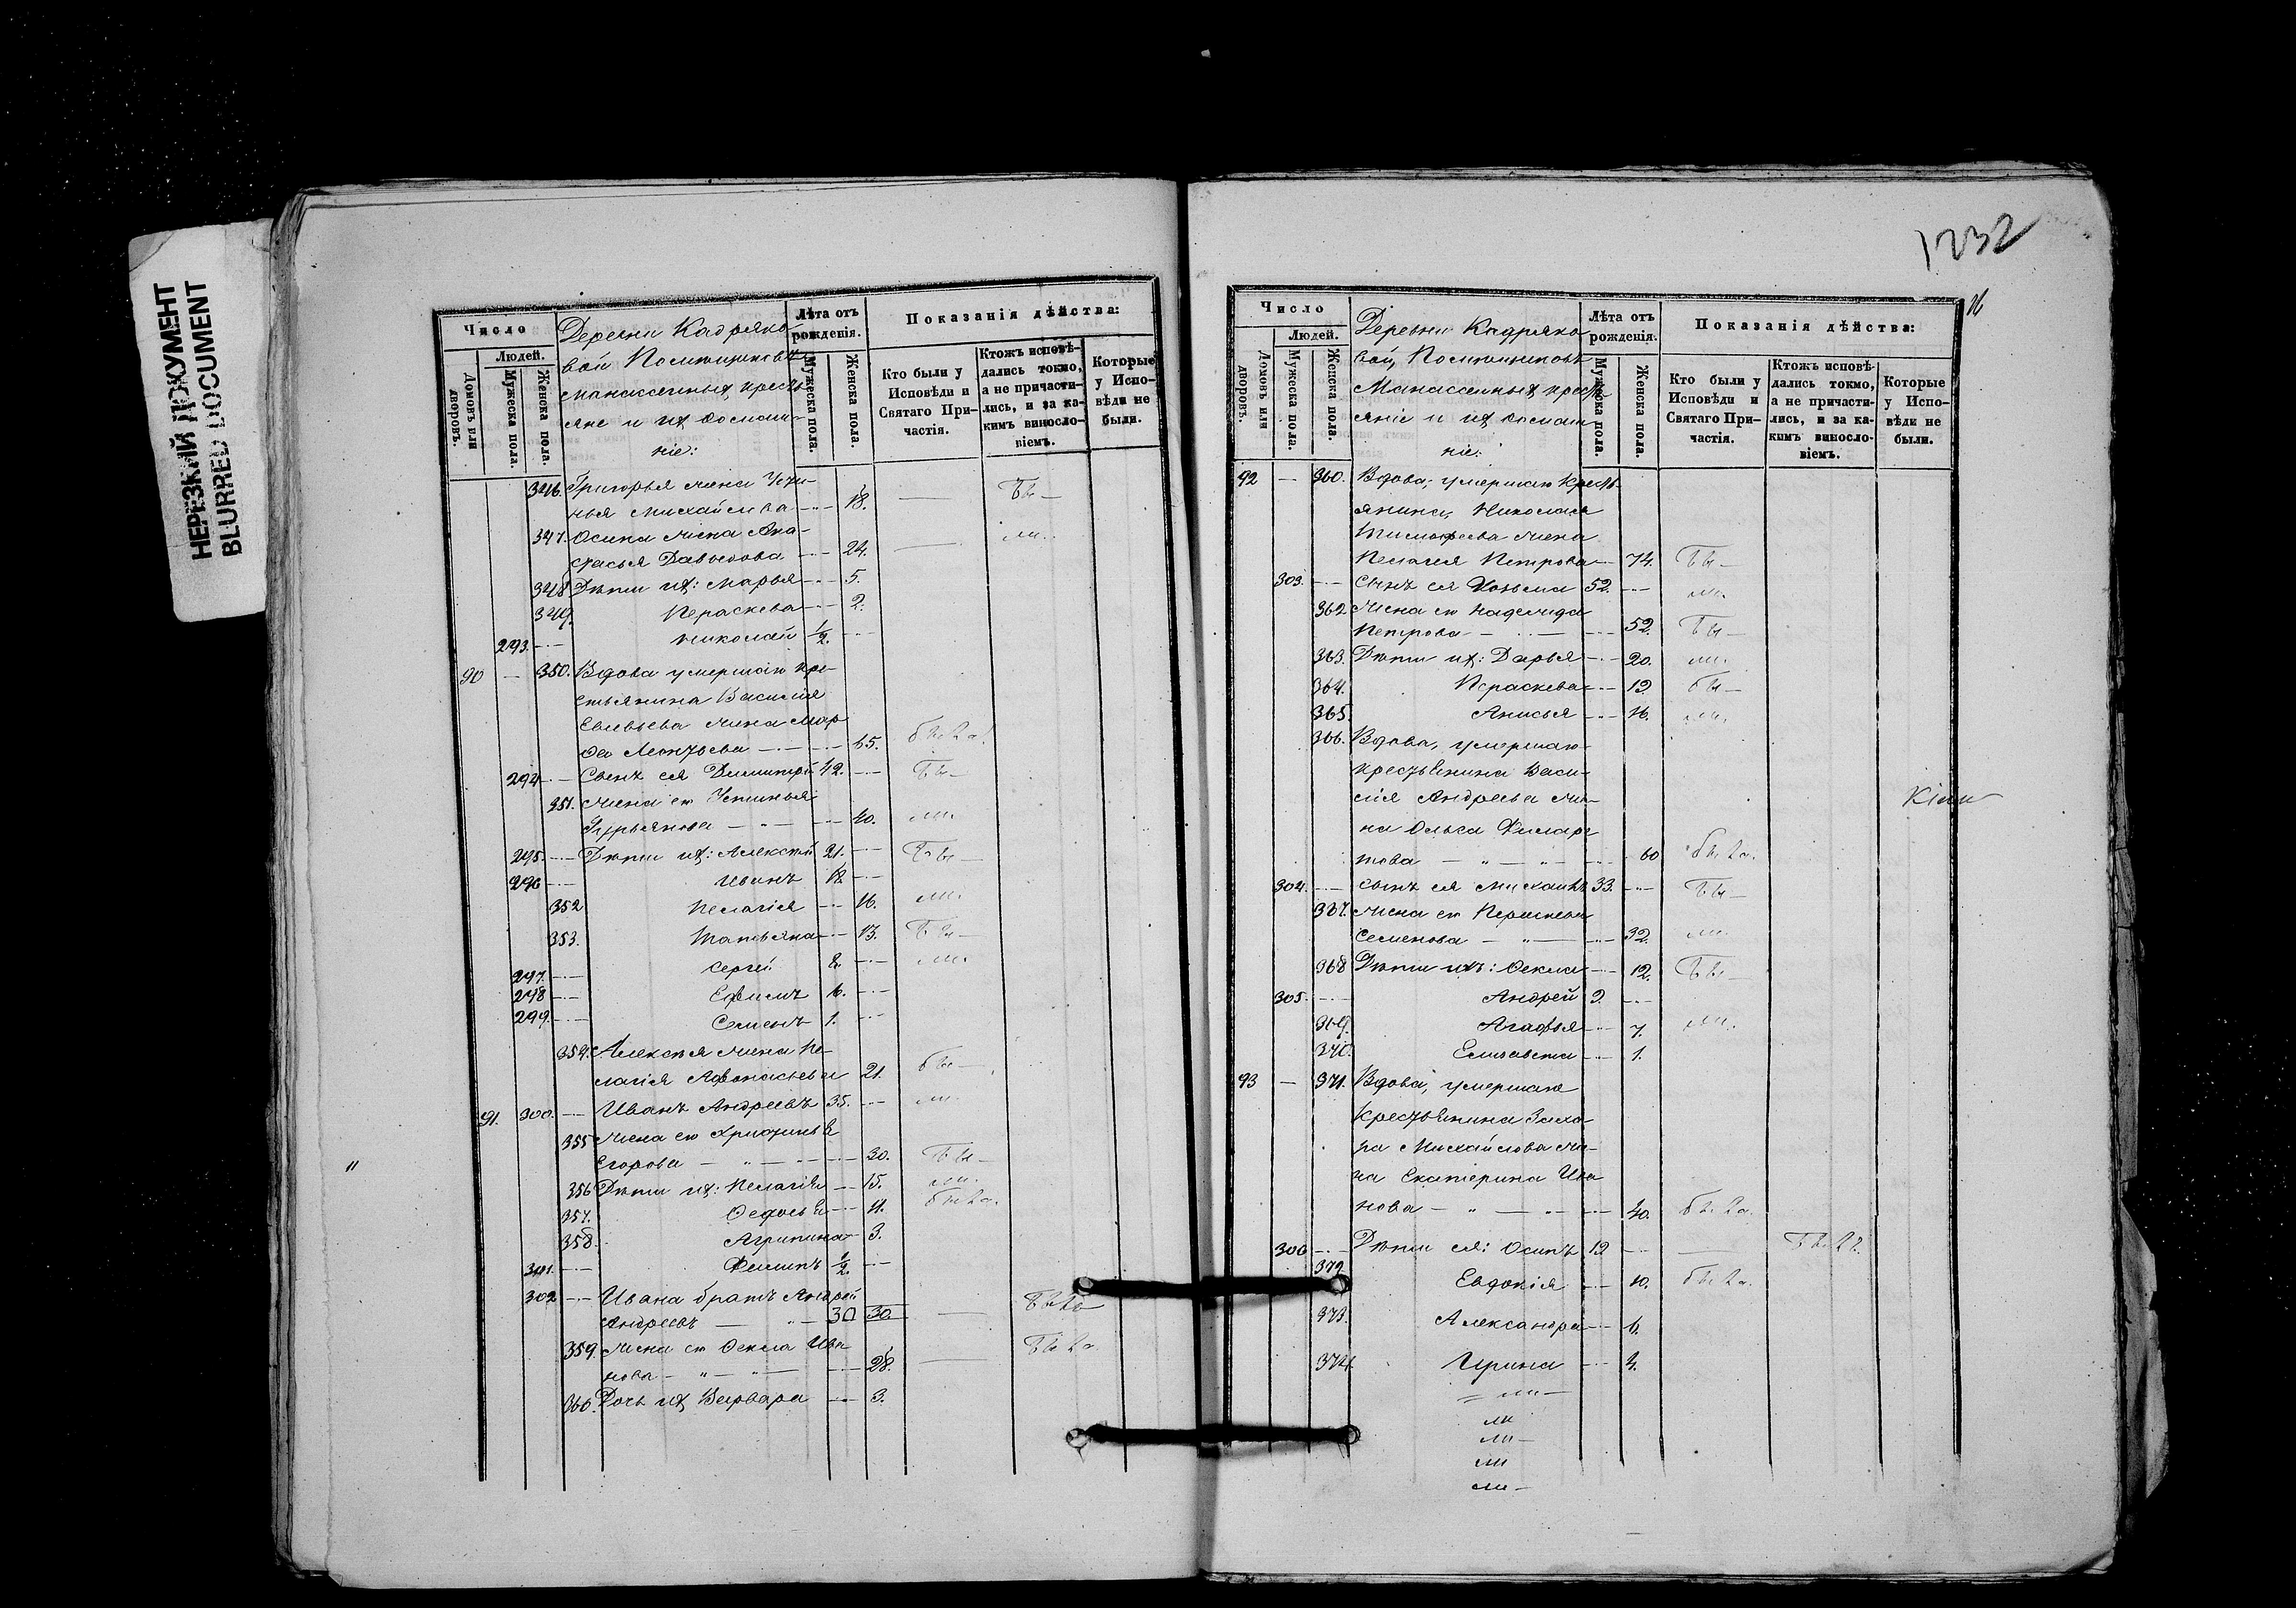 НЕРЕЗКИЙ ДОКУМЕНТ
BLURRED DOCUMENT
1232
16
Число
Людей.
Домовъ или дворовъ.
Мужеска пола.
Женска пола.
Деревни Кадряко-
вой Помѣщиковъ
крестъ-
яне и их домаш-
ніе:
Лѣта отъ рожденія.
Мужеска пола.
Женска пола.
Показанія дѣйства:
Кто были у Исповѣди и Святаго При-частія.
Ктожъ исповѣ-дались токмо, а не причасти-лись, и за ка-кимъ виносло-віемъ.
Которые у Испо-вѣди не были.
346. Григорья жена Усти-
нья Михайлова 18. бы-
347. Осипа жена Ана-
стасья Давыдова 24. ли.
348 Дѣти их: Марья 5.
349. Пераскева 2.
293. Николай 1/2.
90 — 350. Вдова умершаго кре-
стьянина Василія
жена Мар-
фа Леонтьева 65. была.
294 Сынъ ея Димитрій 42. бы-
351. Жена его Устинья
Гурьянова 40. ли.
295. Дѣти их: Алексѣй 21. бы-
296 Иванъ 18.
352 Пелагія 16. ли.
353. Татьяна 13. бы-
297. Сергей 8. ли.
298 Ефимъ 6.
299. Семенъ 1.
354. Алексѣя жена Пе-
лагія Афонасьева 21. бы-
91. 300. Иванъ Андреевъ 35. ли.
355 Жена его Христинья
Егорова 30. бы-
356 Дѣти их: Пелагія 15. ли.
357. Федосья 11. была.
358. Агрипина 3.
301. Филипъ 1/2.
302 Ивана братъ Андрей
Андреевъ 30 30 были
359. Жена его Фекла Ива-
нова 28. была
360. Дочь их Варвара 3.
Число
Людей.
Домовъ или дворовъ.
Мужеска пола.
Женска пола.
Деревни Кадряко-
вой, Помѣщиковъ
кресть-
яніе и их домаш-
ніе:
Лѣта отъ рожденія.
Мужеска пола.
Женска пола.
Показанія дѣйства:
Кто были у Исповѣди и Святаго При-частія.
Ктожъ исповѣ-дались токмо, а не причасти-лись, и за ка-кимъ виносло-віемъ.
Которые у Испо-вѣди не были.
92 — 360. Вдова, умершаго кресть-
янина, Николая
Тимофеева жена
Пелагея Петрова 74. бы-
303. Сынъ ея Козьма 52. ли.
362 Жена его Надежда
Петрова 52. бы-
363. Дѣти их: Дарья 20. ли.
364. Пераскева 19. бы-
365. Анисья 16. ли.
366. Вдова, умершаго
крестьянина Васи-
лія Андреева же-
на Ольга
това 60 была.
304. Сынъ ея Михаилъ 33. бы-
367. Жена его Пераскева
Семенова 32. ли.
368 Дѣти ихъ: Фекла 12. бы-
305. Андрей 9.
369. Агафья 7. ли.
370. Елизавета 1.
93 — 371. Вдова, умершаго
крестьянина Заха-
ра Михайлова же-
на Екатерина Ива-
нова 40. была.
306 Дѣти ея: Осипъ 12
372 Евдокія 10. была.
373. Александра 6.
374. Ирина 4.
ли
ли
ли-
ли
ли-